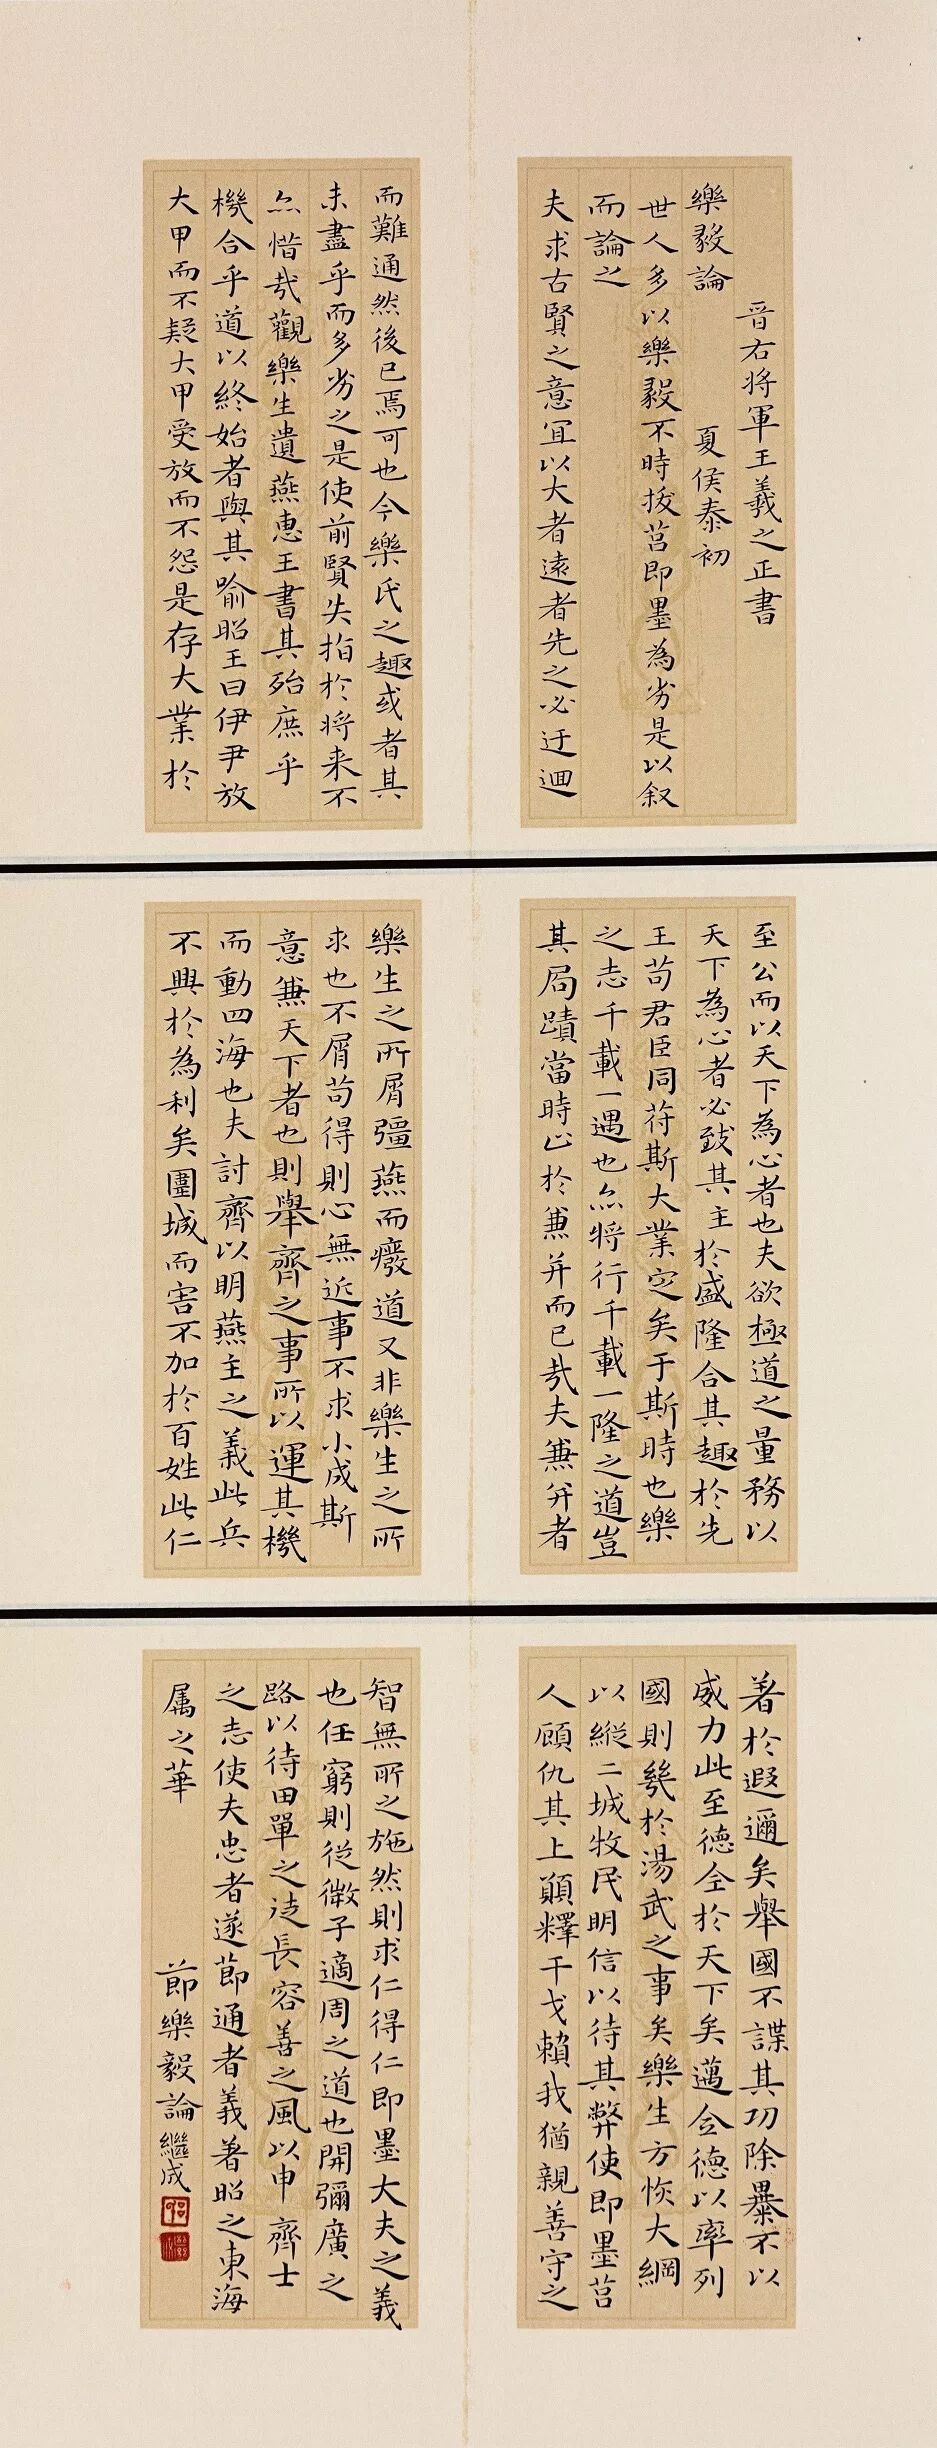 晉右将軍王羲之正書
樂毅論
夏侯泰初
世人多以樂毅不時拔莒即墨為劣是以叙
而論之
夫求古賢之意宜以大者遠者先之必迂迴
而難通然後已焉可也今樂氏之趣或者其
未盡乎而多劣之是使前賢失指於将来不
亦惜哉觀樂生遺燕惠王書其殆庶乎
機合乎道以終始者與其喻昭王曰伊尹放
大甲而不疑大甲受放而不怨是存大業於
至公而以天下為心者也夫欲極道之量務以
天下為心者必致其主於盛隆合其趣於先
王苟君臣同符斯大業定矣于斯時也樂
之志千載一遇也亦将行千載一隆之道豈
其局蹟當時止於兼并而已哉夫兼并者
樂生之所屑彊燕而癈道又非樂生之所
求也不屑苟得則心無近事不求小成斯
意兼天下者也則舉齊之事所以運其機
而動四海也夫討齊以明燕主之義此兵
不興於為利矣圍城而害不加於百姓此仁
著於遐邇矣舉國不謀其功除暴不以
威力此至德全於天下矣邁令德以率列
國則幾於湯武之事矣樂生方恢大綱
以縱二城牧民明信以待其弊使即墨莒
人顧仇其上願釋干戈賴我猶親善守之
智無所之施然則求仁得仁即墨大夫之義
也任窮則從微子適周之道也開彌廣之
路以待田單之徒長容善之風以申齊士
之志使夫忠者遂節通者義著昭之東海
属之華
節樂毅論繼成